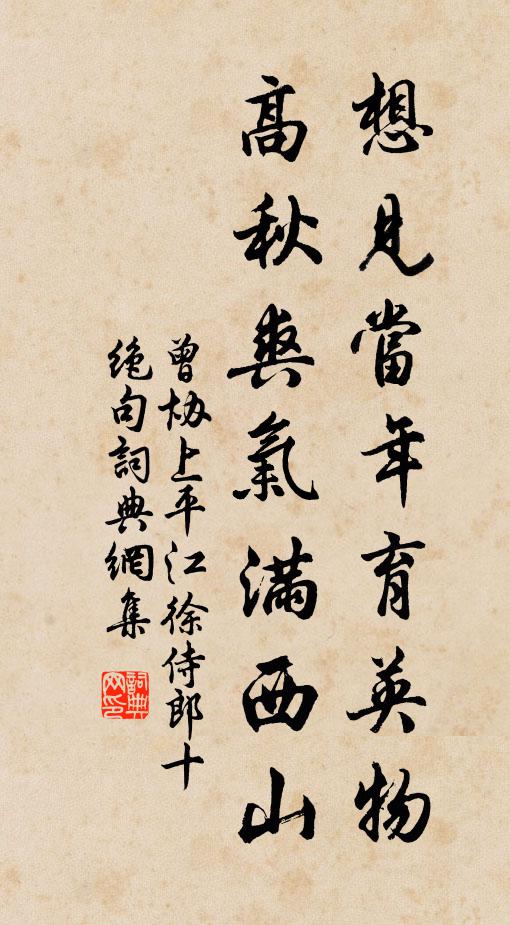 想見當年育英物
高秋爽氣滿西山
曾協上平江徐侍郎十
絕句詞典網集
詞典
网印